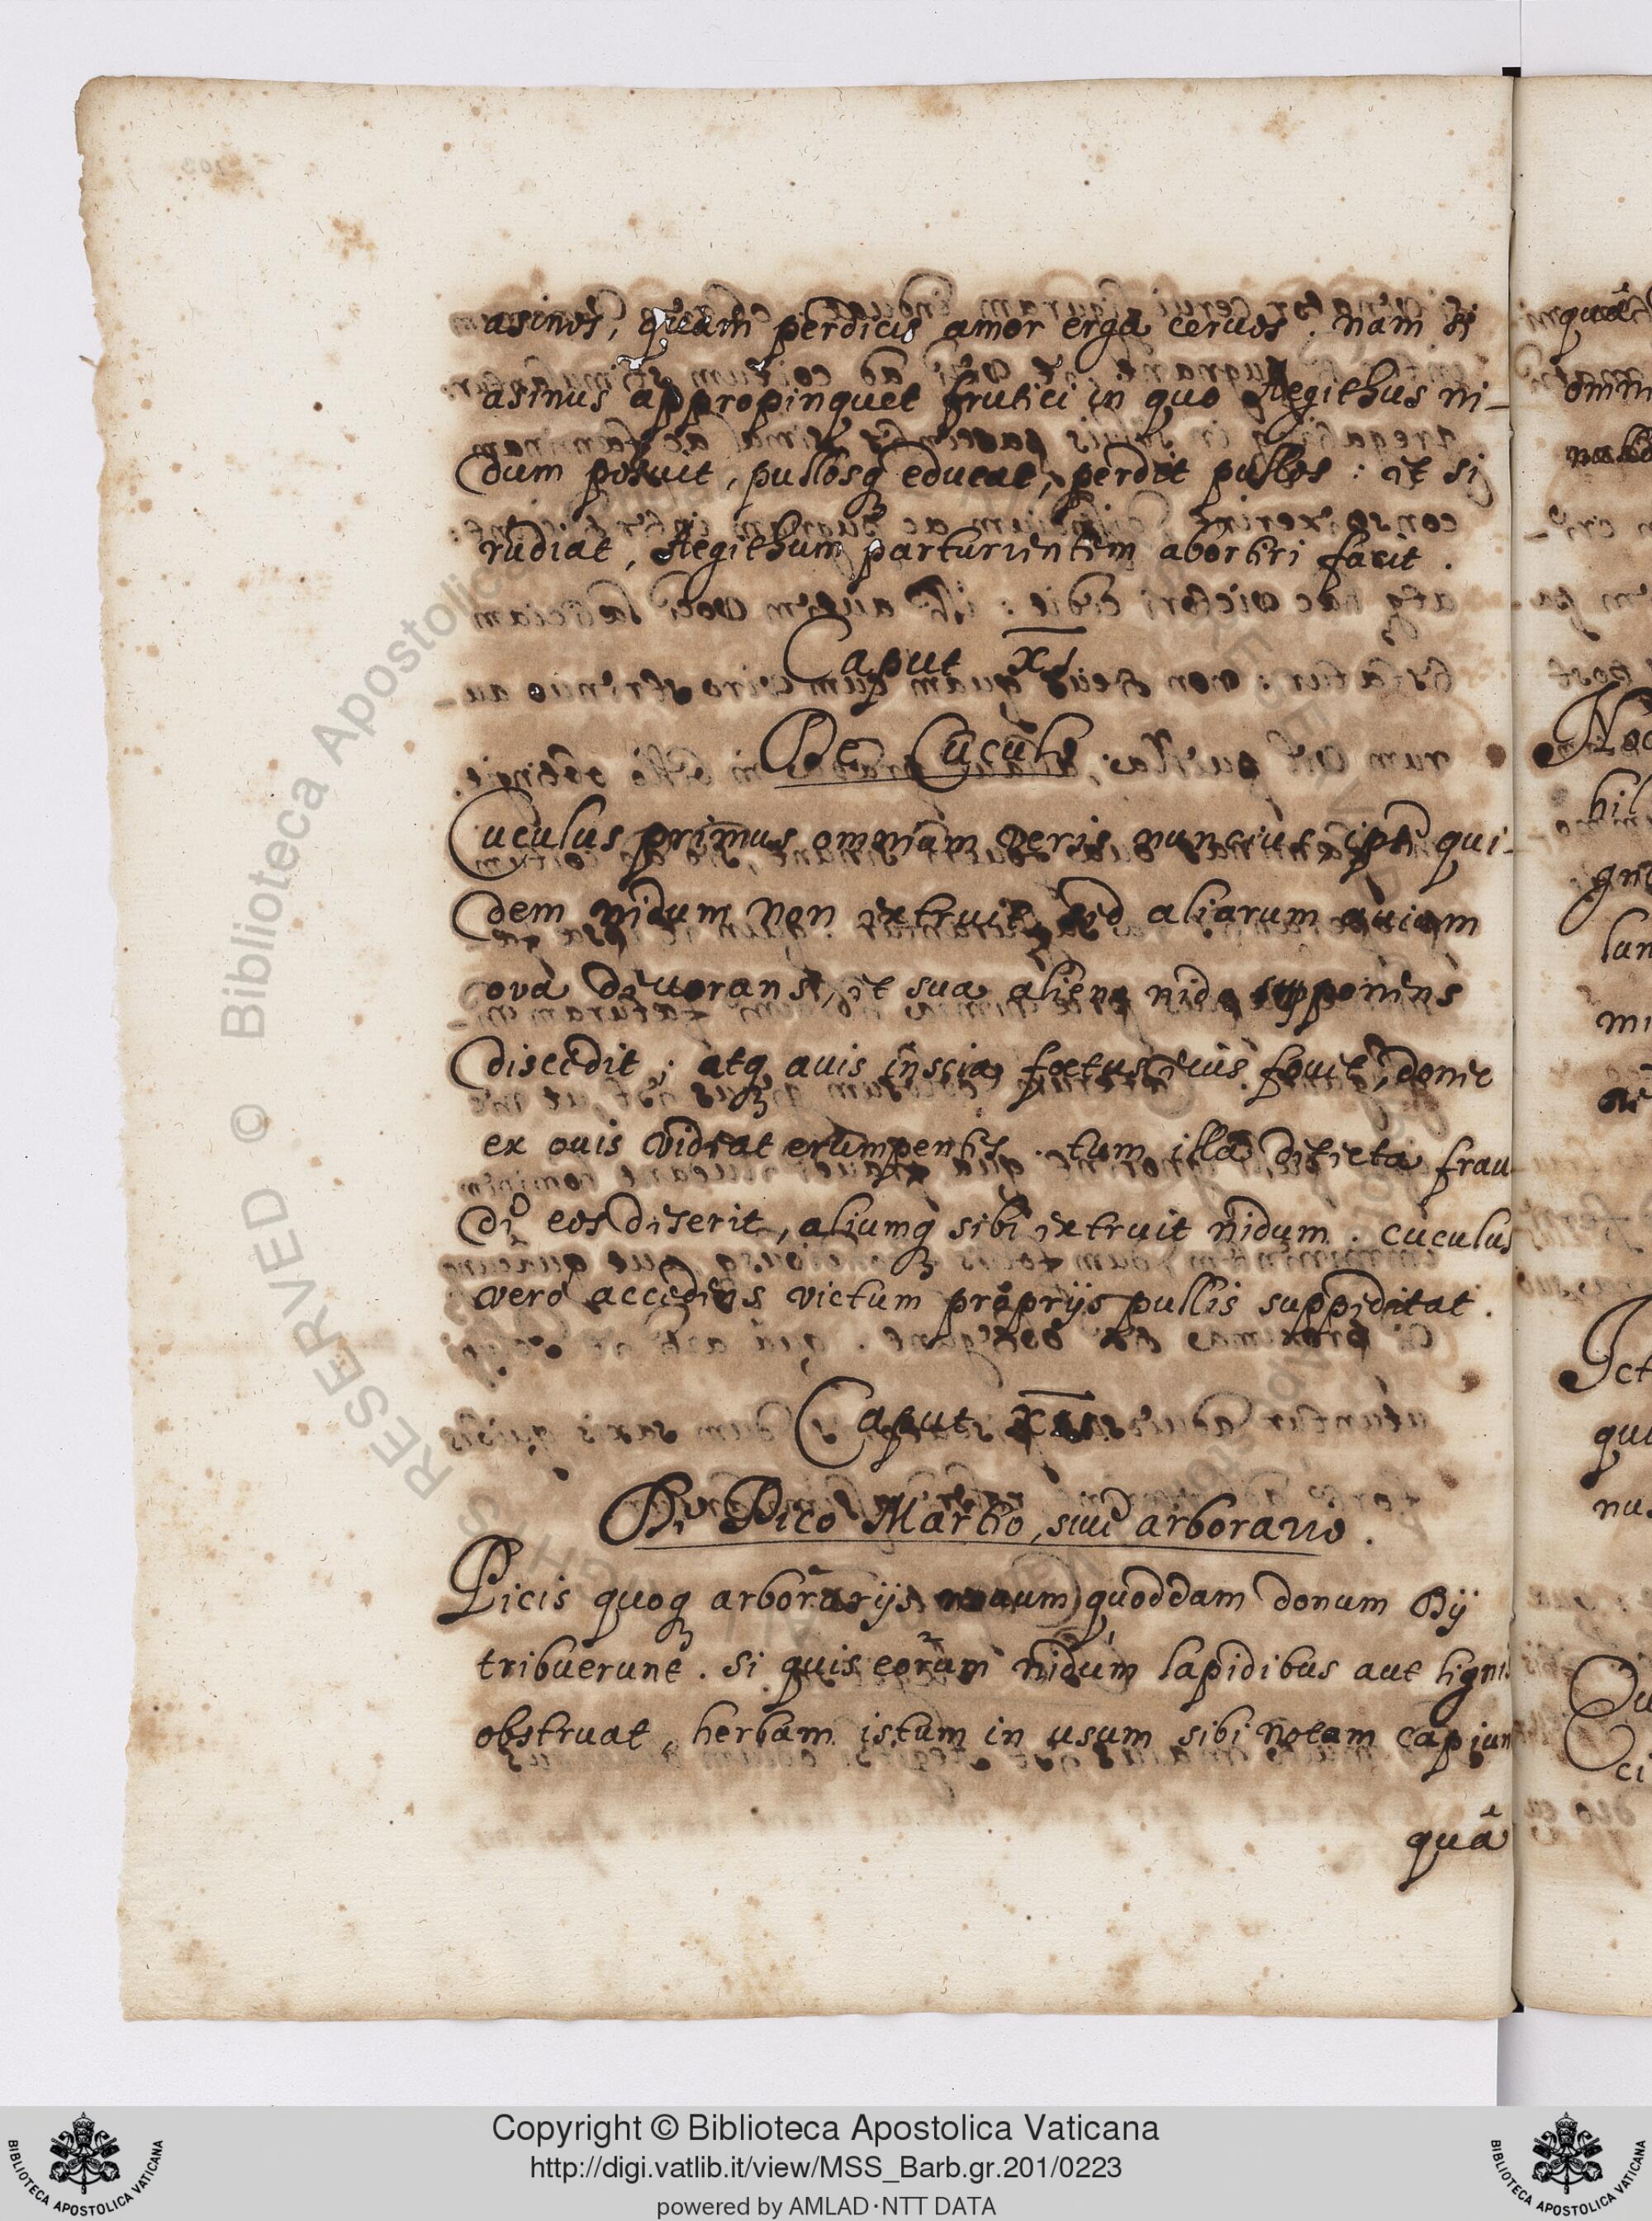 asinos, quàm perdicis amor erga ceruos. nam si
asinus appropinquet frutici in quo Aegithus ni-
dum posuit, pullosq educat, perdit pullos: et si
rudiat, Aegithum parturientem abortiri facit.
Caput XI
De Cuculo
Cuculus primus omnium Veris nuncius, ipse qui-
dem nidum non extruit, sed aliarum auium
ova deuorans, et sua alieno nido supponens
discedit; atq auis inscia foetus eius fouet, donec
ex ouis videat erumpentes. tum illa detecta frau
de eos deserit, aliumq sibi extruit nidum. cuculus
vero accedens victum proprijs pullis suppeditat.
Caput XII
De Pico Martio, siue arborario.
Picis quoq arborarijs quoddam donum Dij
tribuerunt. Si quis eorum nidum lapidibus aut lignis
obstruat, herbam istum in usum sibi notam capiun
quâ
Copyright © Biblioteca Apostolica Vaticana
http://digi.vatlib.it/view/MSS_Barb.gr.201/0223
powered by AMLAD·NTT DATA